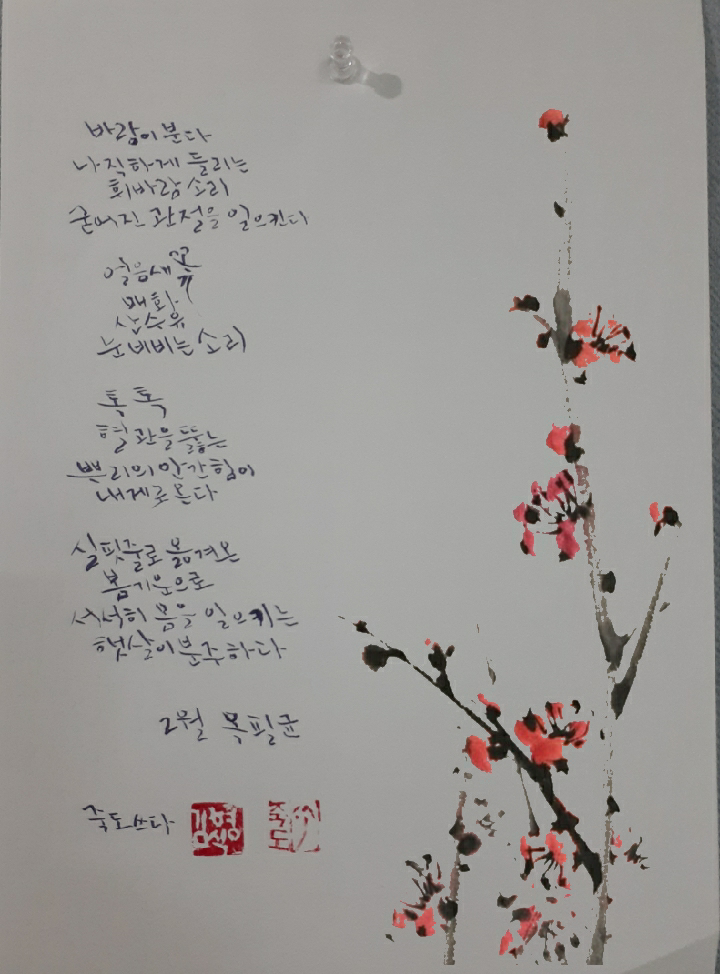 바람이 분다
나직하게 들리는
휘바람 소리
굳어진 관절을 일으킨다
얼음새꽃
매화
산수유
눈비비는 소리
톡 톡
혈관을 뚫는
뿌리의 안간힘이
내게로 온다
실핏줄로 옮겨온
봄기운으로
서서히 몸을 일으키는
햇살이 분주하다
2월 목필균
죽도쓰다
김형식
죽도